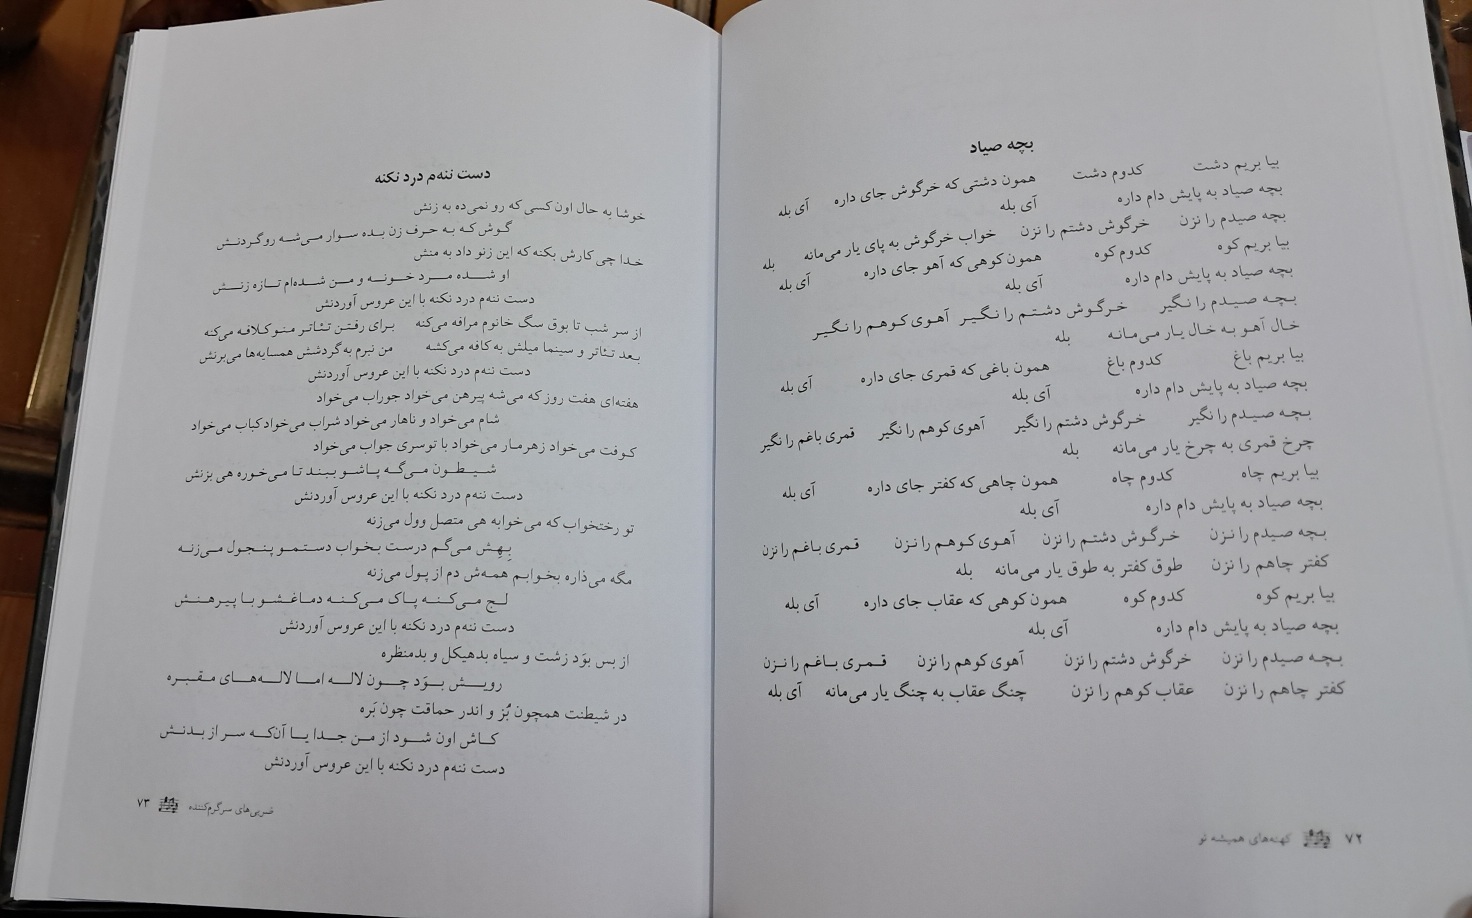 بچه صیاد
بیا بریم دشت کدوم دشت همون دشتی که خرگوش جای داره آی بله
بچه صیاد به پایش دام داره آی بله
بچه صیدم را نزن خرگوش دشتم را نزن خواب خرگوش به پای یار می‌مانه بله
بیا بریم کوه کدوم کوه همون کوهی که آهو جای داره آی بله
بچه صیاد به پایش دام داره آی بله
بچه صیدم را نگیر خرگوش دشتم را نگیر آهوی کوهم را نگیر
خال آهو به خال یار می‌مانه بله
بیا بریم باغ کدوم باغ همون باغی که قمری جای داره آی بله
بچه صیاد به پایش دام داره آی بله
بچه صیدم را نگیر خرگوش دشتم را نگیر آهوی کوهم را نگیر قمری باغم را نگیر
چرخ قمری به چرخ یار می‌مانه بله
بیا بریم چاه کدوم چاه همون چاهی که کفتر جای داره آی بله
بچه صیاد به پایش دام داره آی بله
بچه صیدم را نزن خرگوش دشتم را نزن آهوی کوهم را نزن قمری باغم را نزن
کفتر چاهم را نزن طوق کفتر به طوق یار می‌مانه بله
بیا بریم کوه کدوم کوه همون کوهی که عقاب جای داره آی بله
بچه صیاد به پایش دام داره آی بله
بچه صیدم را نزن خرگوش دشتم را نزن آهوی کوهم را نزن قمری باغم را نزن
کفتر چاهم را نزن عقاب کوهم را نزن چنگ عقاب به چنگ یار می‌مانه آی بله
۷۲ کهنه‌های همیشه نو
دست ننه‌م درد نکنه
خوشا به حال اون کسی که رو نمی‌ده به زنش
گوش که به حرف زن بده سوار می‌شه رو گردنش
خدا چی کارش بکنه که این زنو داد به منش
او شده مرد خونه و من شده‌ام تازه زنش
دست ننه‌م درد نکنه با این عروس آوردنش
از سر شب تا بوق سگ خانوم مرافه می‌کنه برای رفتن تئاتر منو کلافه می‌کنه
بعد تئاتر و سینما میلش به کافه می‌کشه من نبرم به گردشش همسایه‌ها می‌برنش
دست ننه‌م درد نکنه با این عروس آوردنش
هفته‌ای هفت روز که می‌شه پیرهن می‌خواد جوراب می‌خواد
شام می‌خواد و ناهار می‌خواد شراب می‌خواد کباب می‌خواد
کوفت می‌خواد زهرمار می‌خواد با توسری جواب می‌خواد
شیطون می‌گه پاشو ببند تا می‌خوره هی بزنش
دست ننه‌م درد نکنه با این عروس آوردنش
تو رختخواب که می‌خوابه هی متصل وول می‌زنه
بِهِش می‌گم درست بخواب دستمو پنجول می‌زنه
مگه می‌ذاره بخوابم همه‌ش دم از پول می‌زنه
لج می‌کنه پاک می‌کنه دماغشو با پیرهنش
دست ننه‌م درد نکنه با این عروس آوردنش
از بس بوَد زشت و سیاه بدهیکل و بدمنظره
رویش بوَد چون لاله اما لاله‌های مقبره
در شیطنت همچون بُز و اندر حماقت چون بَره
کاش اون شود از من جدا یا آن‌که سر از بدنش
دست ننه‌م درد نکنه با این عروس آوردنش
ضربی‌های سرگرم‌کننده ۷۳